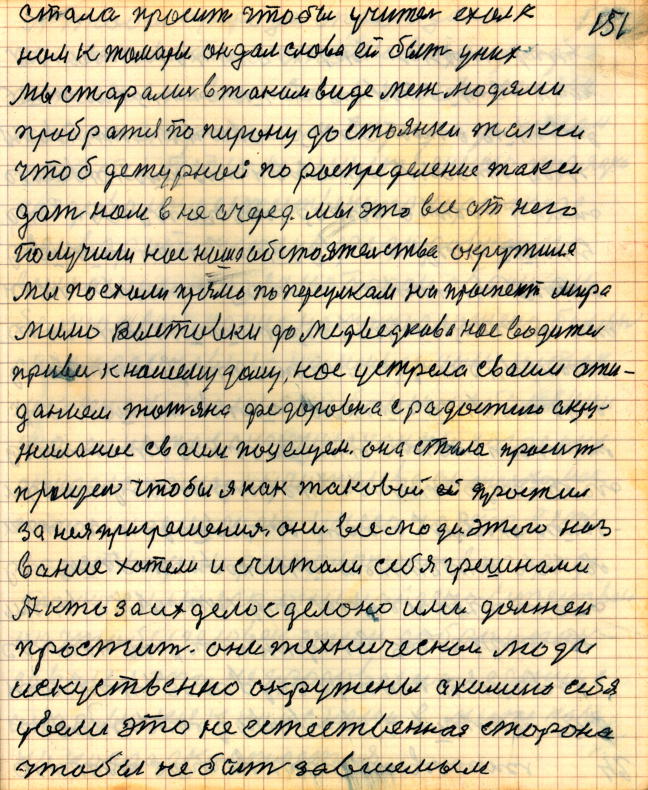 151
стала просит чтобы учител ехал к
ном к томары он дал слова ей быт у них
мы старались в таком виде меж людями
пробратя по пирону до стоянки такси
что б детурной по роспределение такси
дат ном в не очеред. мы это все от него
получили нас нашо абстоятелства окружила
мы поехали прямо по переулкам на проспект мира
мимо выставки до медведкова нас водител
привез к нашему дому, нас устрела сваим ожи-
данием татяна федоровна с радостию
сваим поцелуем. она стала просит
прощен чтобы я как таковой ей простил
за нея пригрешения, они все люди этого наз
вание хотели и считали себя грешнами
А кто за их дело сделоно ими должен
простит. они технически люди
искуственно окружены а химию себя
увели это не естественная сторона
чтобы не быт зависемым